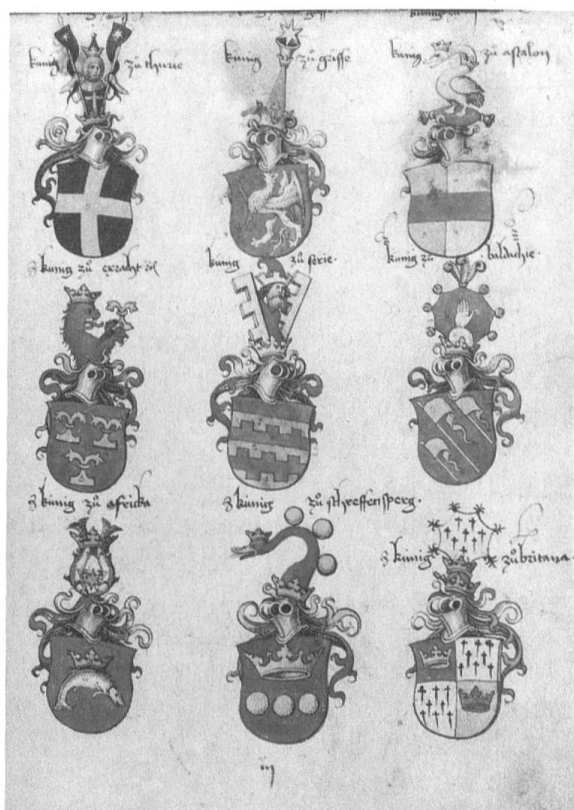 künig zů thurie
künig zů griffe
künig zů astalon
künig zů
künig zů serie.
künig zů baldachie
künig zů africka
künig zů streffensperg.
künig zů britana.
iij